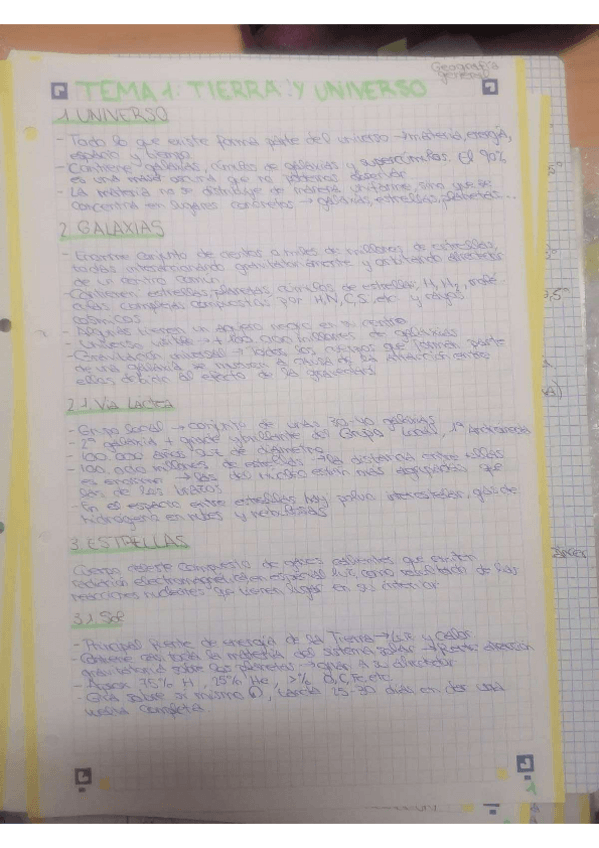 Geografía
general
TEMA 1: TIERRA Y UNIVERSO
1. UNIVERSO
- Todo lo que existe forma parte del universo → materia, energía,
espacio y tiempo.
- Contiene galaxias, cúmulos de galaxias y supercúmulos. El 90%
es una masa oscura que no podemos observar.
- La materia no se distribuye de manera uniforme, sino que se
concentra en lugares concretos → galaxias, estrellas, planetas...
2. GALAXIAS
- Enorme conjunto de cientos o miles de millones de estrellas,
todas interaccionando gravitatoriamente y orbitando alrededor
de un centro común.
- Contienen estrellas, planetas, cúmulos de estrellas, H, H2, molé-
culas complejas compuestas por H, N, C, S, etc y rayos
cósmicos
- Algunas tienen un agujero negro en su centro
- Universo → + 100.000 millones de galaxias
- Gravitación universal → Todos los cuerpos que forman parte
de una galaxia se mueven a causa de la atracción entre
ellos debido al efecto de la gravedad.
2.1. Vía Láctea
- Grupo local → conjunto de unas 30-40 galaxias
- 2ª galaxia + grande y brillante del Grupo Local, 1ª Andrómeda
- 100 000 años luz de diámetro
- 100 000 millones de estrellas → la distancia entre ellas
es enorme → las del núcleo están más agrupadas que
las de los brazos
- En el espacio entre estrellas hay polvo interestelar, gas de
hidrógeno en nubes y nebulosas
3. ESTRELLAS
Cuerpo celeste compuesto de gases calientes que emiten
radiación electromagnética, en especial luz, como resultado de las
reacciones nucleares que tienen lugar en su interior.
3.1. Sol
- Principal fuente de energía de la Tierra → luz y calor.
- Contiene casi toda la materia del sistema solar → fuerte atracción
gravitatoria sobre los planetas → giran a su alrededor
- Aprox. 75% H, 25% He, >% O, C, Fe, etc.
- Gira sobre sí mismo, tarda 25-30 días en dar una
vuelta completa.
1